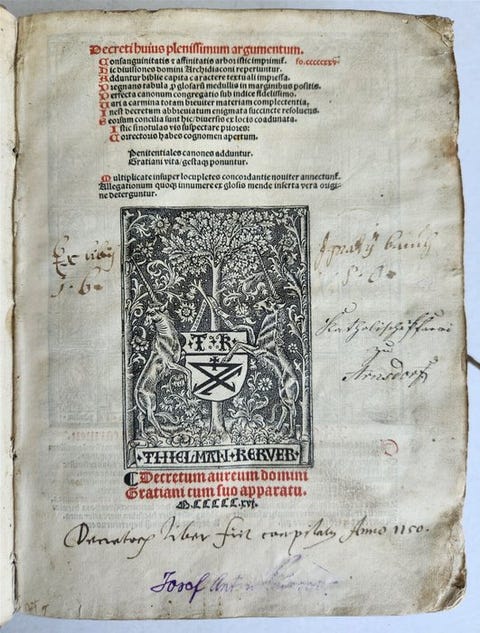 Decreti huius plenissimum argumentum.
Consanguinitatis ⁊ affinitatis arbor
Hic diuisiones domini Archidiaconi reperiuntur.
Adduntur biblie capita caractere textuali impressa.
Pregnans tabula glosarũ medullis in marginibus positis.
Perfecta canonum congregatio sub indice fidelissimo.
Uaria carmina totam breuiter materiam complectentia,
Inest decretum abbreuiatum enigmata succincte resoluens.
Seorsum concilia sunt hic/diuersio ex locis coadunata.
Istic sinotulas vis suspectare priores:
Correctoris habes cognomen apertum.
Penitentiales canones adduntur.
Gratiani vita/gestaqꝫ ponuntur.
Multiplicate insuper locupletes concordantie nouiter annectunt᷑.
Allegationum quoqꝫ innumere ex glosis mende inserta vera origi-
ne deterguntur.
T R
THIELMAN KERVER
Decretum aureum domini
Gratiani cum suo apparatu.
M.CCCCC.xvi.
Katholische Pfarrei
zu
Arnsdorf
Liber fuit Anno 1150.
Josef